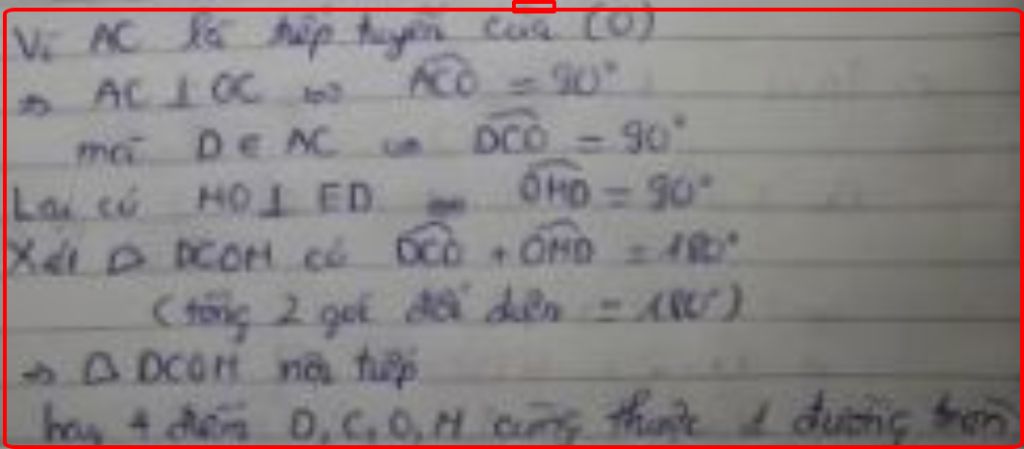 Vì AC là tiếp tuyến của (O)
⇒ AC ⊥ OC ⇒ \widehat{ACO} = 90°
mà D ∈ AC ⇒ \widehat{DCO} = 90°
Lại có HO ⊥ ED ⇒ \widehat{OHD} = 90°
Xét ▱ DCOH có \widehat{DCO} + \widehat{OHD} = 180°
(tổng 2 góc đối diện = 180°)
⇒ ▱ DCOH nội tiếp
hay 4 điểm D, C, O, H cùng thuộc 1 đường tròn